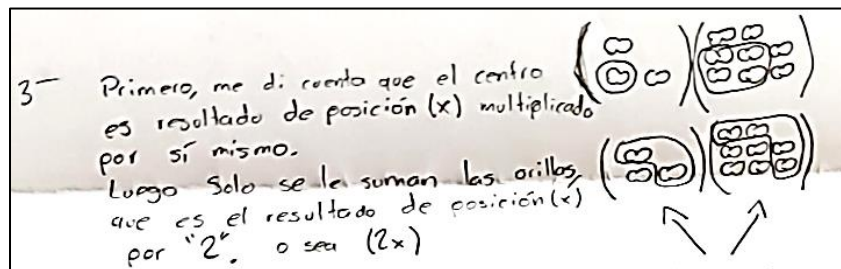 3- Primero, me di cuenta que el centro
es resultado de posición (x) multiplicado
por sí mismo.
Luego Solo se le suman las orillas,
que es el resultado de posición (x)
por "2". o sea (2x)